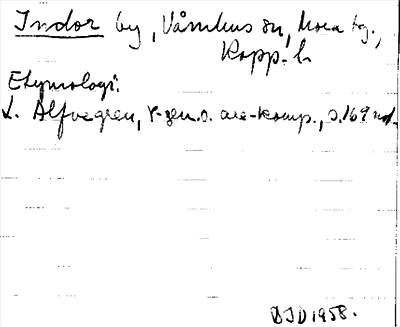 Indor by, Våmhus sn, Mora tg.,
Kopp. l.
Etymologi:
L. Alfvegren, r-gen.o. are-komp., s.169 nd.
BJD 1958.